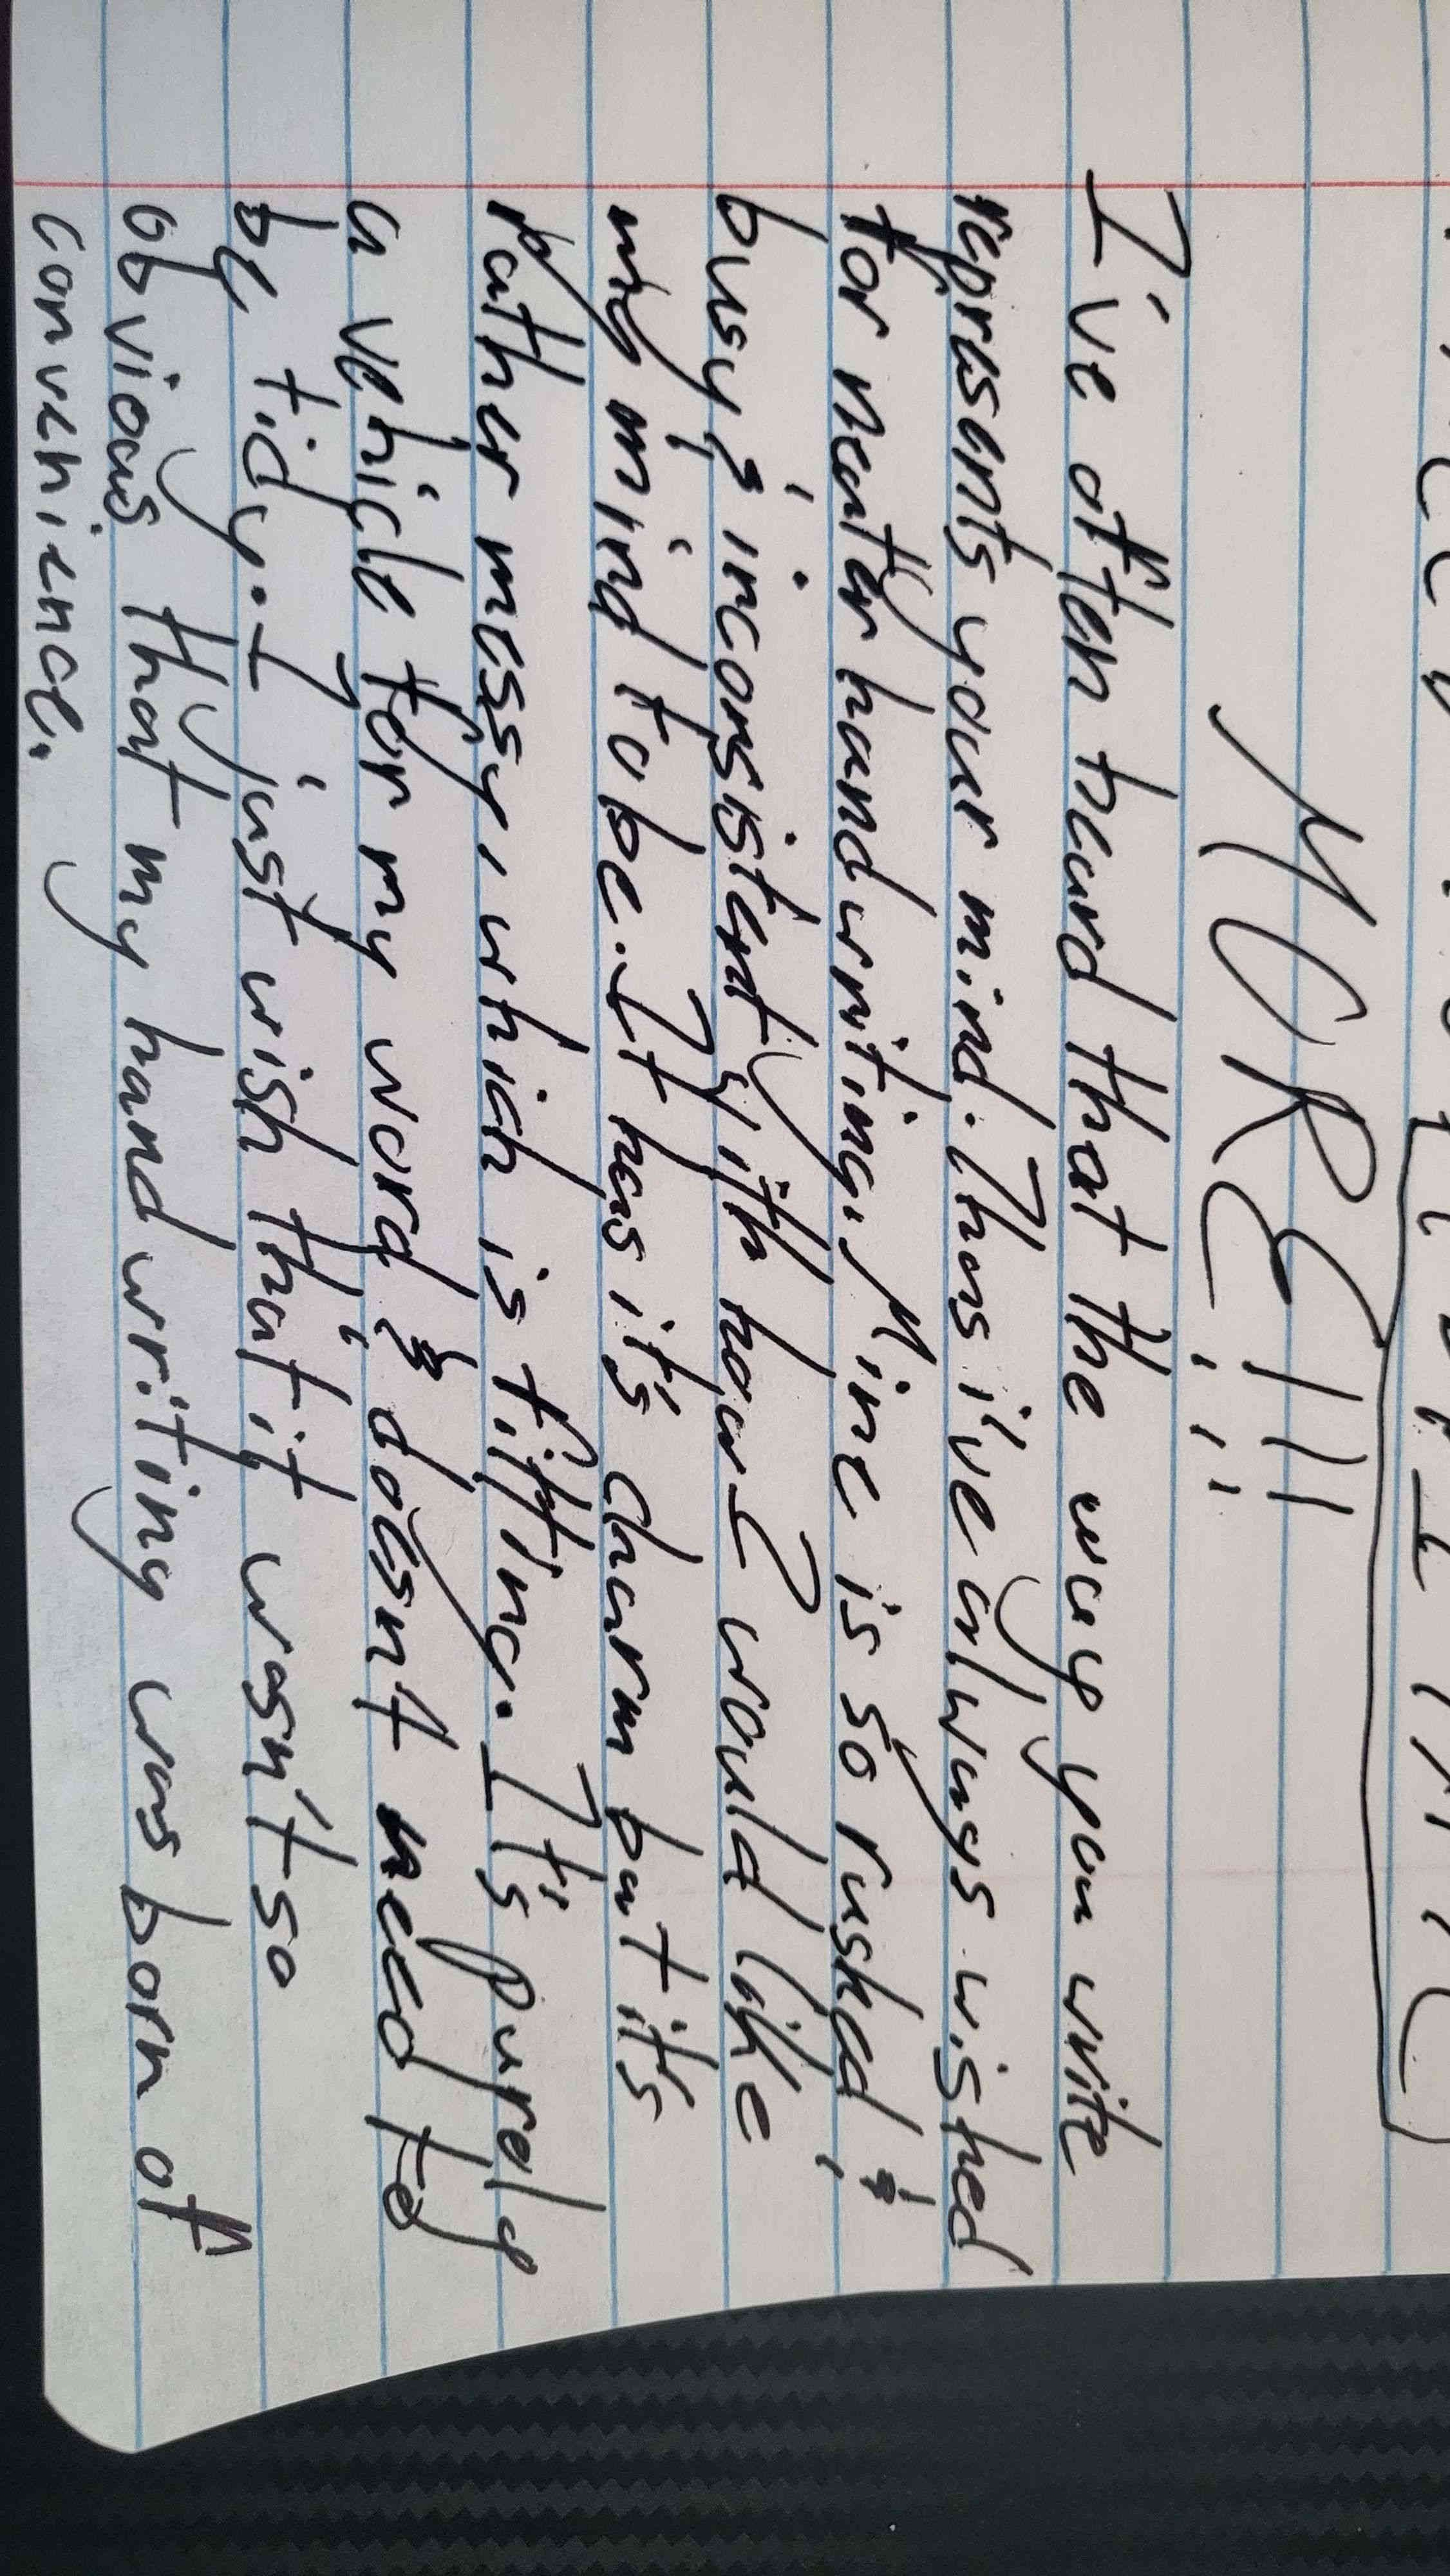 MORE!!!
I've often heard that the way you write
reprasants your mind. Thus i've always wished
for neater handwriting. Mine is so rushed &
busy & inconsistent with how I would like
my mind to be. It has it's charm but it's
rather messy, which is fitting. It's purely
a vehicle for my word & doesnt need to
be tidy. I just wish that it wasn't so
obvious that my handwriting was born of
convenience.